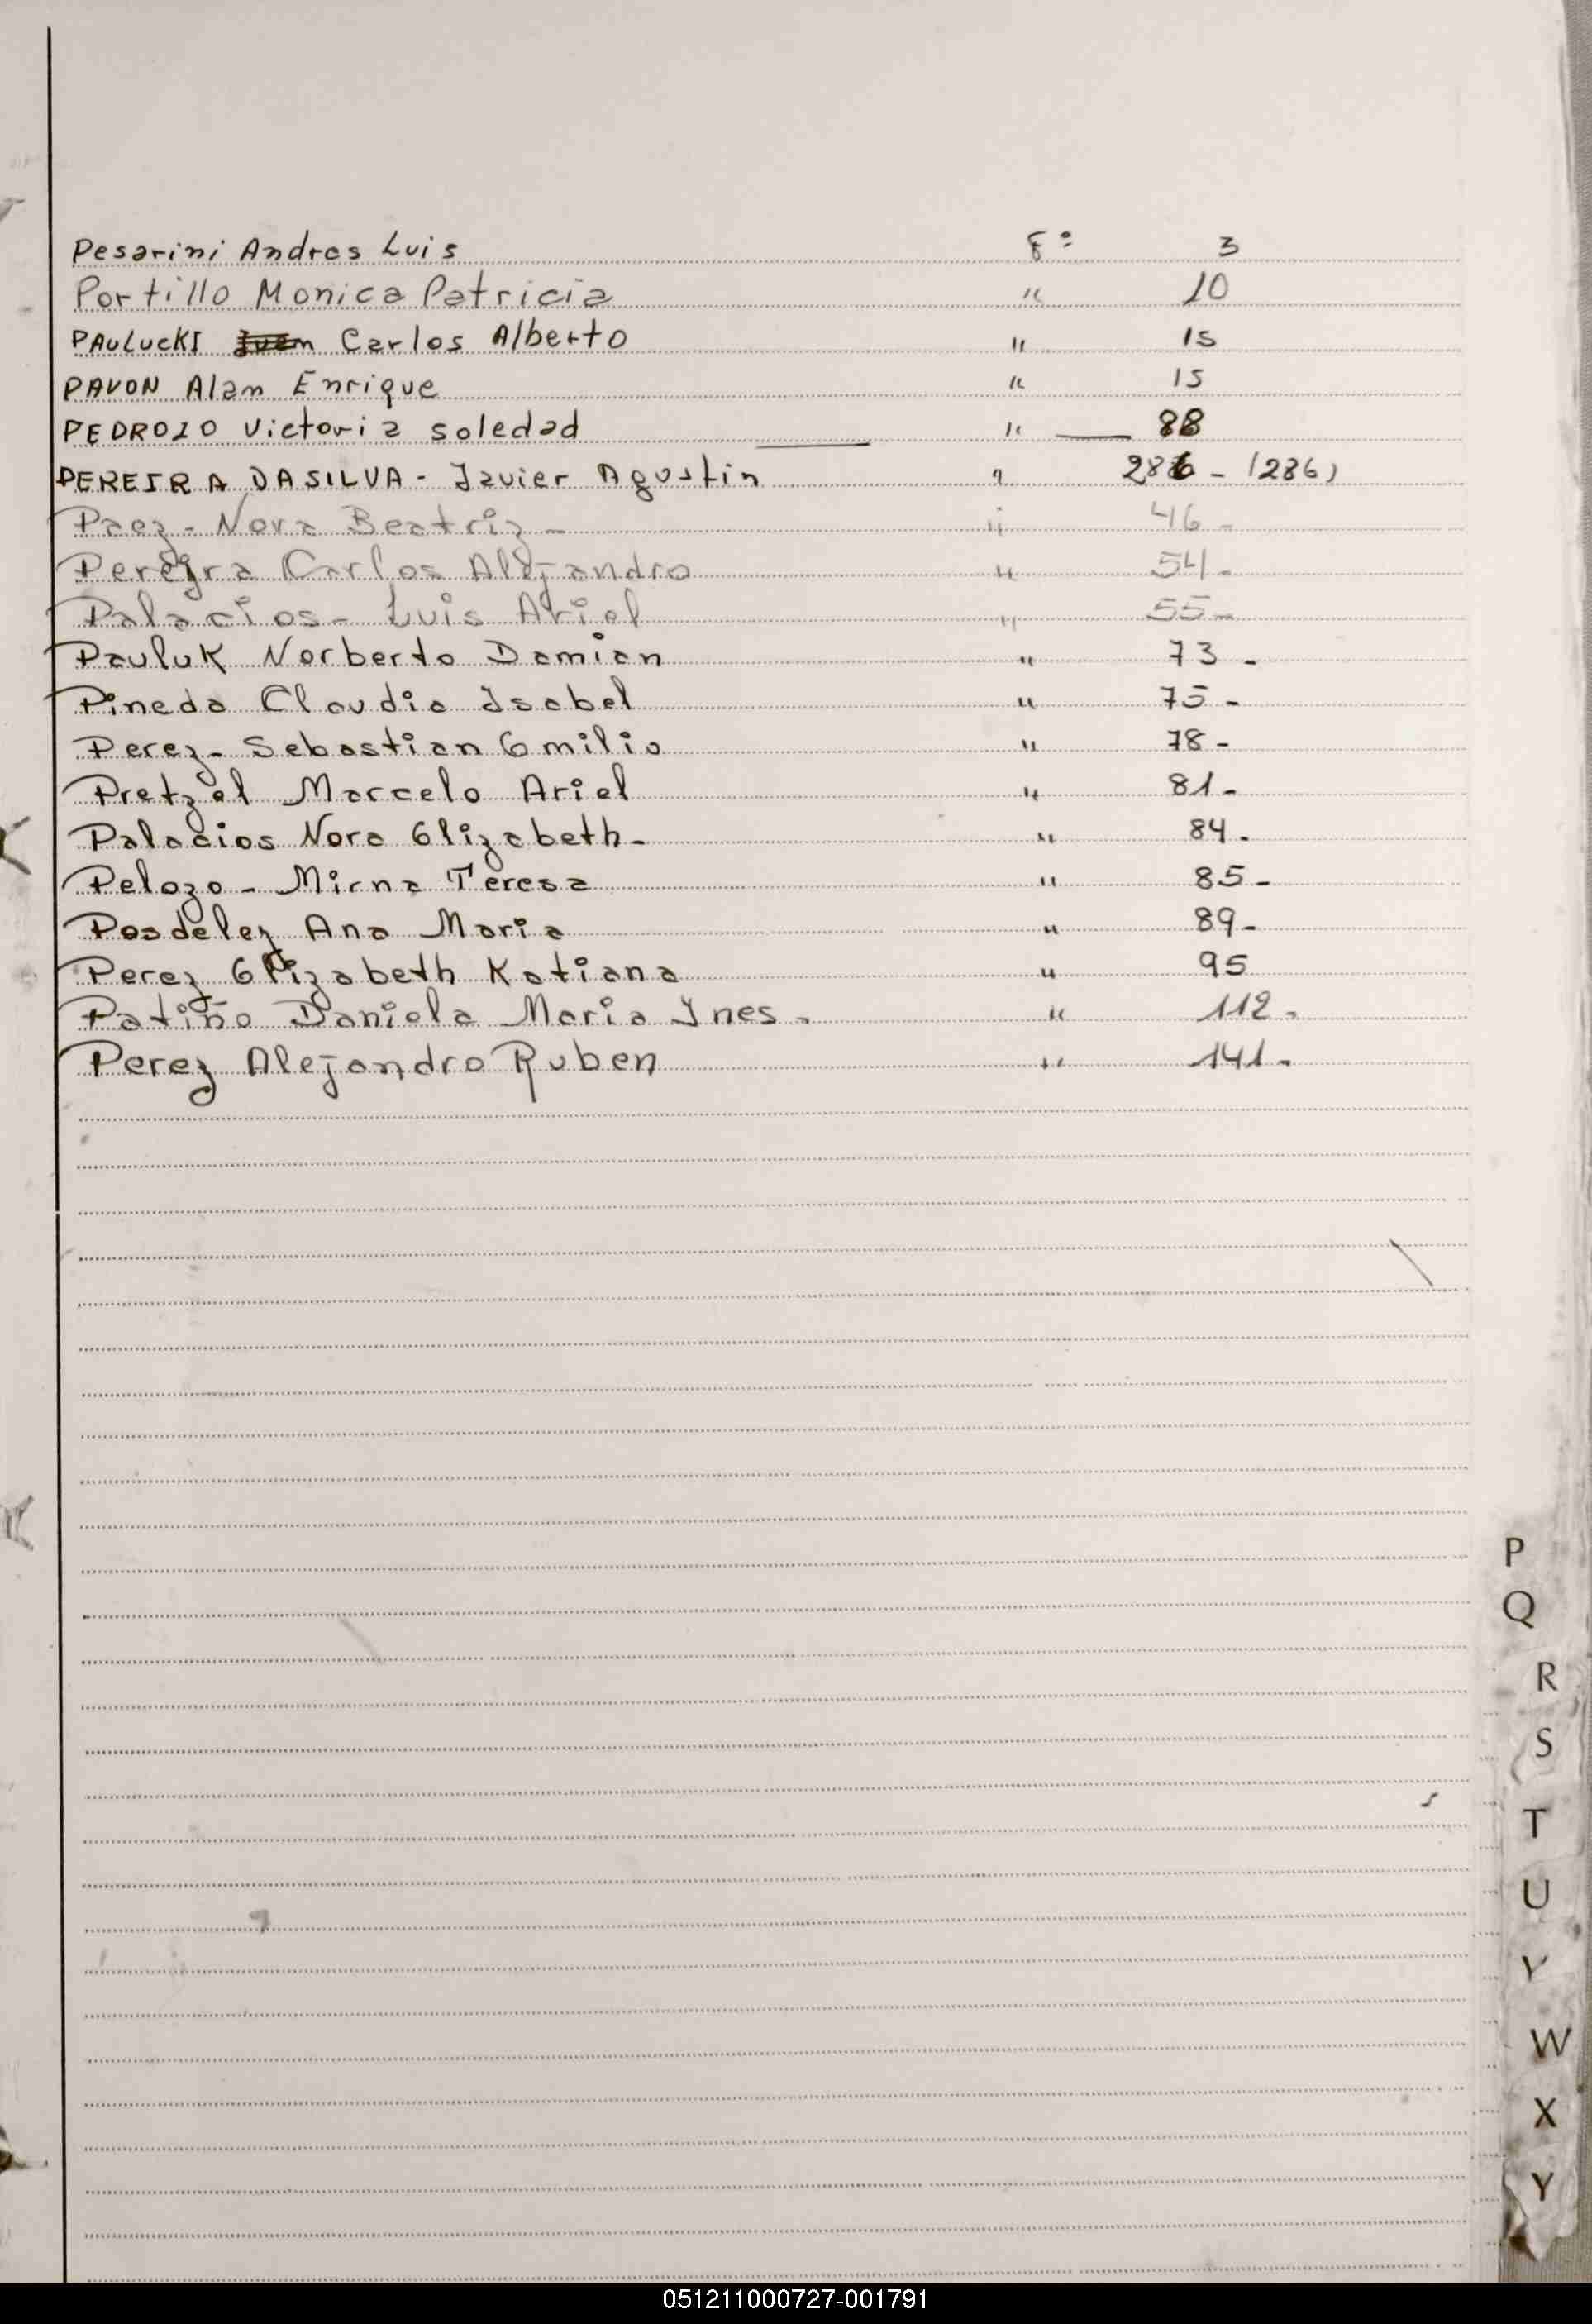 Pesarini Andres Luis F° 3
Portillo Monica Patricia " 10
PAULUCKI Juan Carlos Alberto " 15
PAVON Alan Enrique " 15
PEDROZO Victoria Soledad " 88
PEREIRA DASILVA - Javier Agustin " 286 - (286)
Paez - Nora Beatriz - " 46 -
Pereyra Carlos Alejandro " 54 -
Palacios - Luis Ariel " 55 -
Pauluk Norberto Damian " 73 -
Pineda Claudia Isabel " 75 -
Perez - Sebastian Emilio " 78 -
Pretzel Marcelo Ariel " 81 -
Palacios Nora Elizabeth - " 84 -
Pelozo - Mirna Teresa " 85 -
Posdeley Ana Maria " 89 -
Perez Elizabeth Katiana " 95
Patiño Daniela Maria Ines - " 112 -
Perez Alejandro Ruben " 141 -
P
Q
R
S
T
U
V
W
X
Y
051211000727-001791